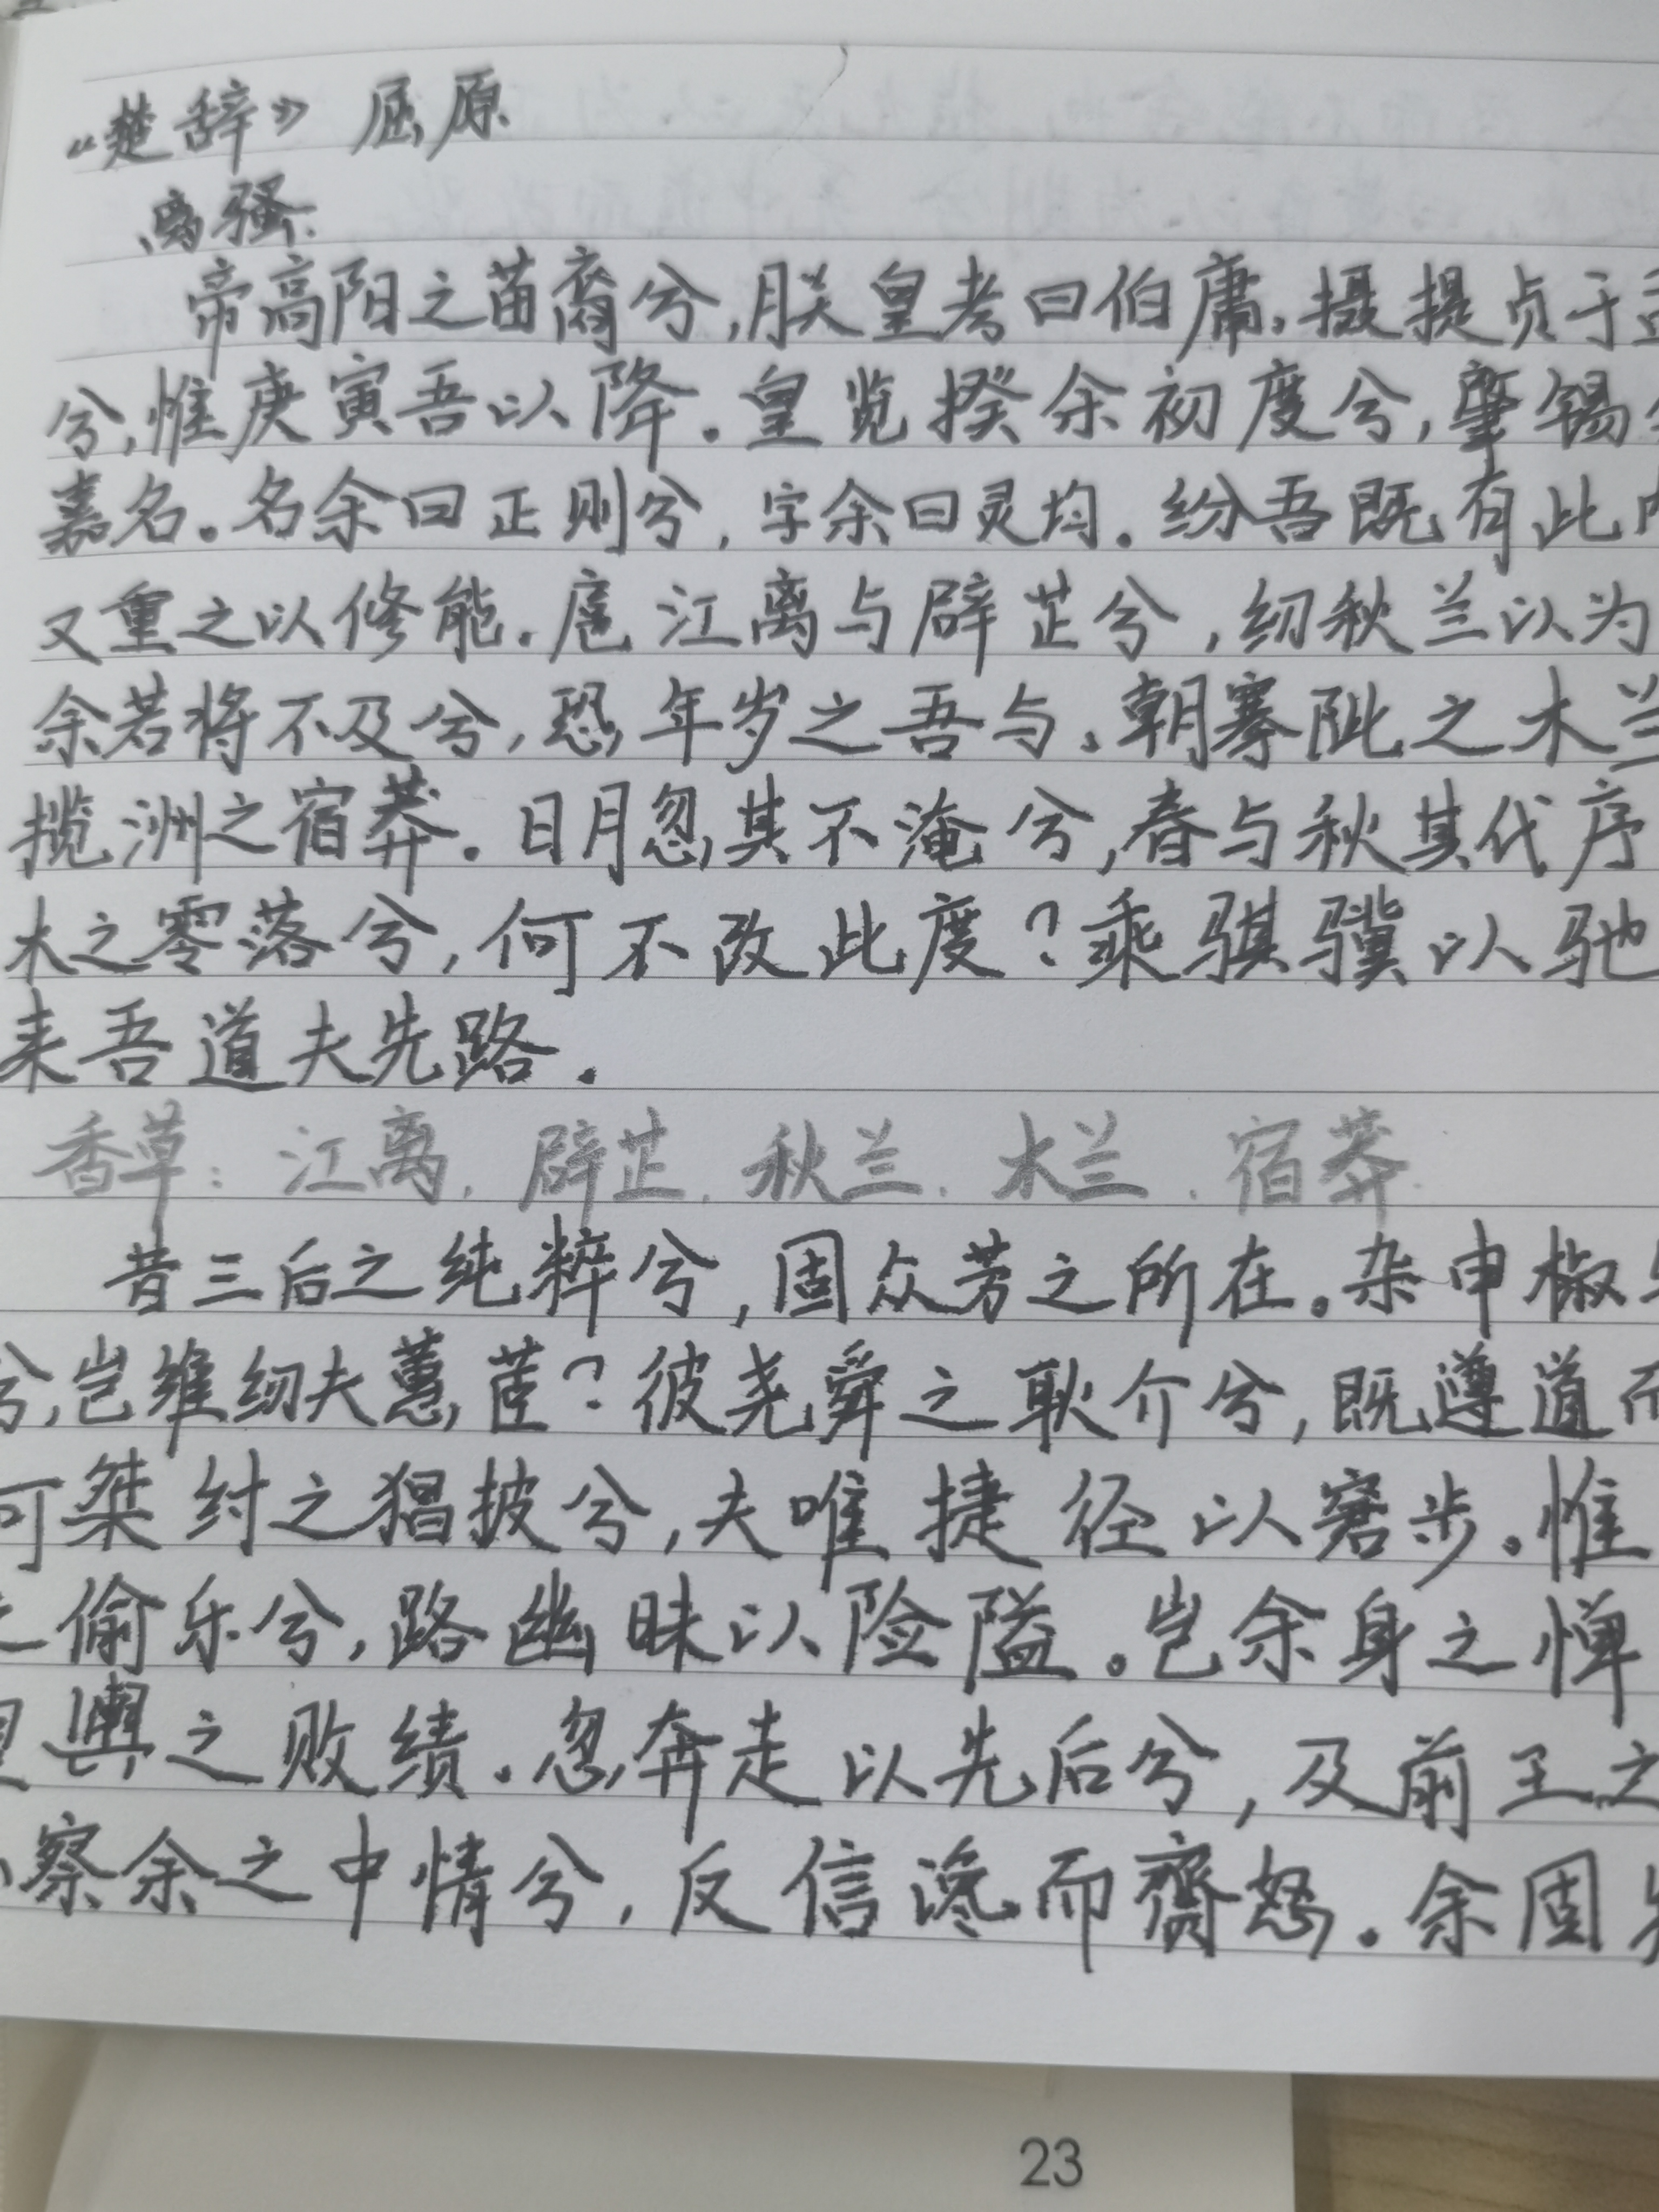 《楚辞》 屈原
离骚.
帝高阳之苗裔兮,朕皇考曰伯庸.摄提贞于
兮,惟庚寅吾以降.皇览揆余初度兮,肇锡
嘉名.名余曰正则兮,字余曰灵均.纷吾既有此
又重之以修能.扈江离与辟芷兮,纫秋兰以为
余若将不及兮,恐年岁之吾与.朝搴阰之木兰
揽洲之宿莽.日月忽其不淹兮,春与秋其代序
木之零落兮,何不改此度?乘骐骥以驰
来吾道夫先路.
香草:江离.辟芷.秋兰.木兰.宿莽.
昔三后之纯粹兮,固众芳之所在。杂申椒
兮,岂维纫夫蕙茝?彼尧舜之耿介兮,既遵道而
何桀纣之猖披兮,夫唯捷径以窘步。惟
偷乐兮,路幽昧以险隘。岂余身之惮
皇舆之败绩.忽奔走以先后兮,及前王之
察余之中情兮,反信谗而齌怒.余固
23